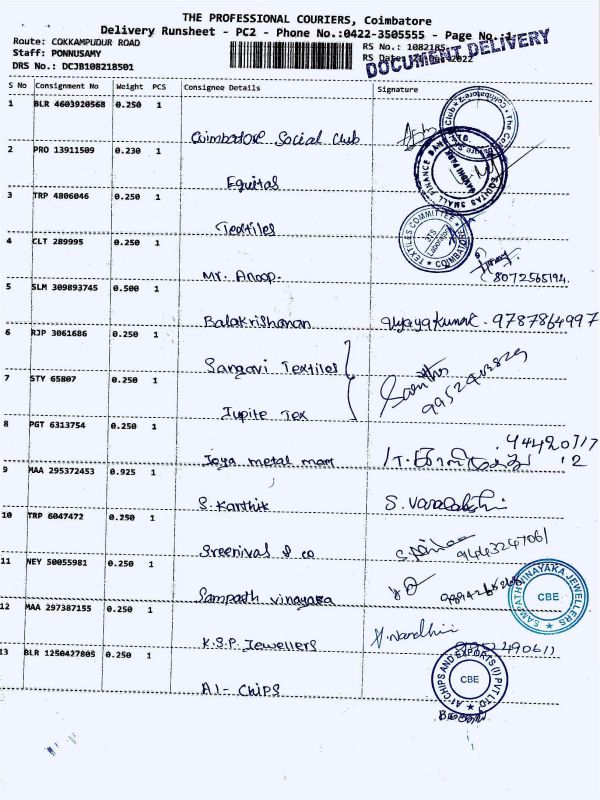 THE PROFESSIONAL COURIERS, Coimbatore
Delivery Runsheet - PC2 - Phone No.:0422-3505555 - Page No.:1
Route: COKKAMPUDUR ROAD
RS No.: 1082185
Staff: PONNUSAMY
RS Date: 2022
DRS No.: DCJB108218501
DOCUMENT DELIVERY
S No Consignment No Weight PCS Consignee Details Signature
1 BLR 4603920568 0.250 1 Coimbatore Social Club
2 PRO 13911509 0.230 1 Equitas
EQUITAS SMALL FINANCE BANK
3 TRP 4806046 0.250 1 Textiles
TEXTILES COMMITTEE COIMBATORE
4 CLT 289995 0.250 1 Mr. Anoop.
8072565194.
5 SLM 309893745 0.500 1 Balakrishanan Vijayakumar. 9787864997
6 RJP 3061686 0.250 1 Sangavi Textiles
7 STY 65807 0.250 1 Jupite Tex
8 PGT 6313754 0.250 1 Jaya metal mart
9 MAA 295372453 0.925 1 S. Karthik S. Varalakshi
10 TRP 6047472 0.250 1 Sreenivas & co
9443247061
11 NEY 50055981 0.250 1 Sampath vinayaka
SAMPATH VINAYAKA JEWELLERS CBE
12 MAA 297387155 0.250 1 K.S.P. Jewellers
13 BLR 1250427805 0.250 1 A1- CHIPS
A1-CHIPS AND EXPORTS (I) PVT LTD. CBE